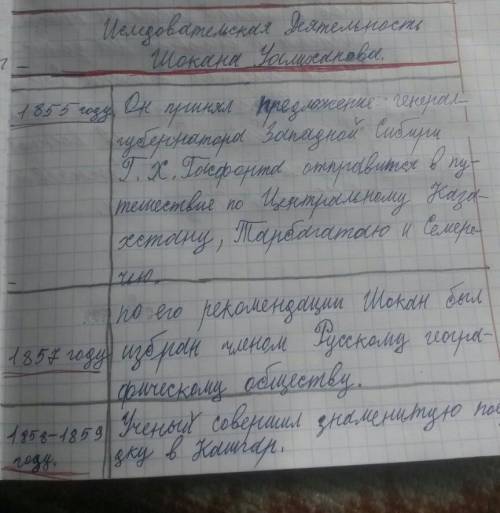 Исследовательская Деятельность
Шокана Уалиханова.
1855 году
Он принял предложение генерал-
губернатора Западной Сибири
Г. Х. Гасфорта отправится в пу-
тешествие по Центральному Каза-
хстану, Тарбагатаю и Семире-
чью.
1857 году
по его рекомендации Шокан был
избран членом Русскому геогра-
фическому обществу.
1858-1859
году.
Ученый совершил знаменитую пое
здку в Кашгар.